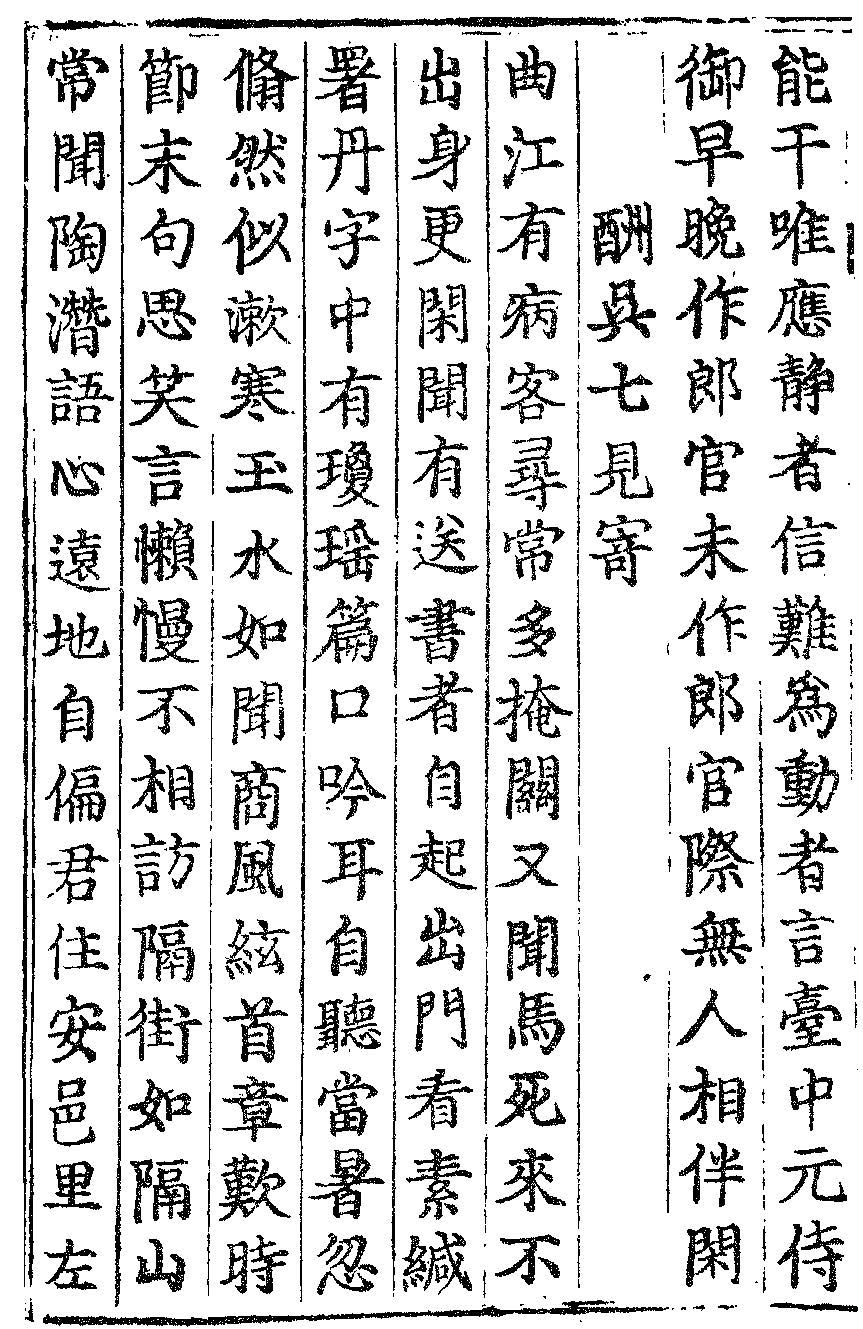 能干唯應静者信難爲動者言臺中元侍
御早晚作郎官未作郎官際無人相伴閑
酬吳七見寄
曲江有病客尋常多掩關又聞馬死來不
出身更閑聞有送書者自起出門看素緘
署丹字中有瓊瑶篇口吟耳自聽當暑忽
翛然似漱寒玉水如聞商風絃首章歎時
節末句思笑言懶慢不相訪隔街如隔山
常聞陶潛語心遠地自偏君住安邑里左